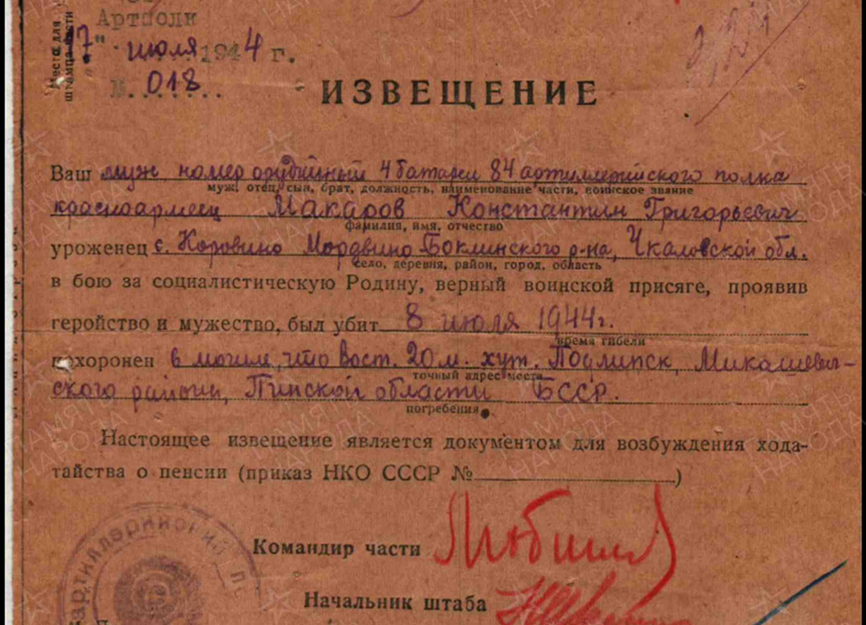 Артполк
Место для штампа части
"7" июля 1944 г.
№ 018
ИЗВЕЩЕНИЕ
Ваш муж номер орудийный 4 батареи 84 артиллерийского полка
муж, отец, сын, брат, должность, наименование части, воинское звание
красноармеец Макаров Константин Григорьевич
фамилия, имя, отчество
уроженец с. Коровино Мордвино Боклинского р-на, Чкаловской обл.
село, деревня, район, город, область
в бою за социалистическую Родину, верный воинской присяге, проявив
геройство и мужество, был убит 8 июля 1944г.
время гибели
похоронен в могиле, что вост. 20 м. хут. Микашевич-
точный адрес места
ского района, Пинской области БССР.
погребения
Настоящее извещение является документом для возбуждения хода-
тайства о пенсии (приказ НКО СССР № )
Командир части
Начальник штаба
ПАМЯТЬ НАРОДА